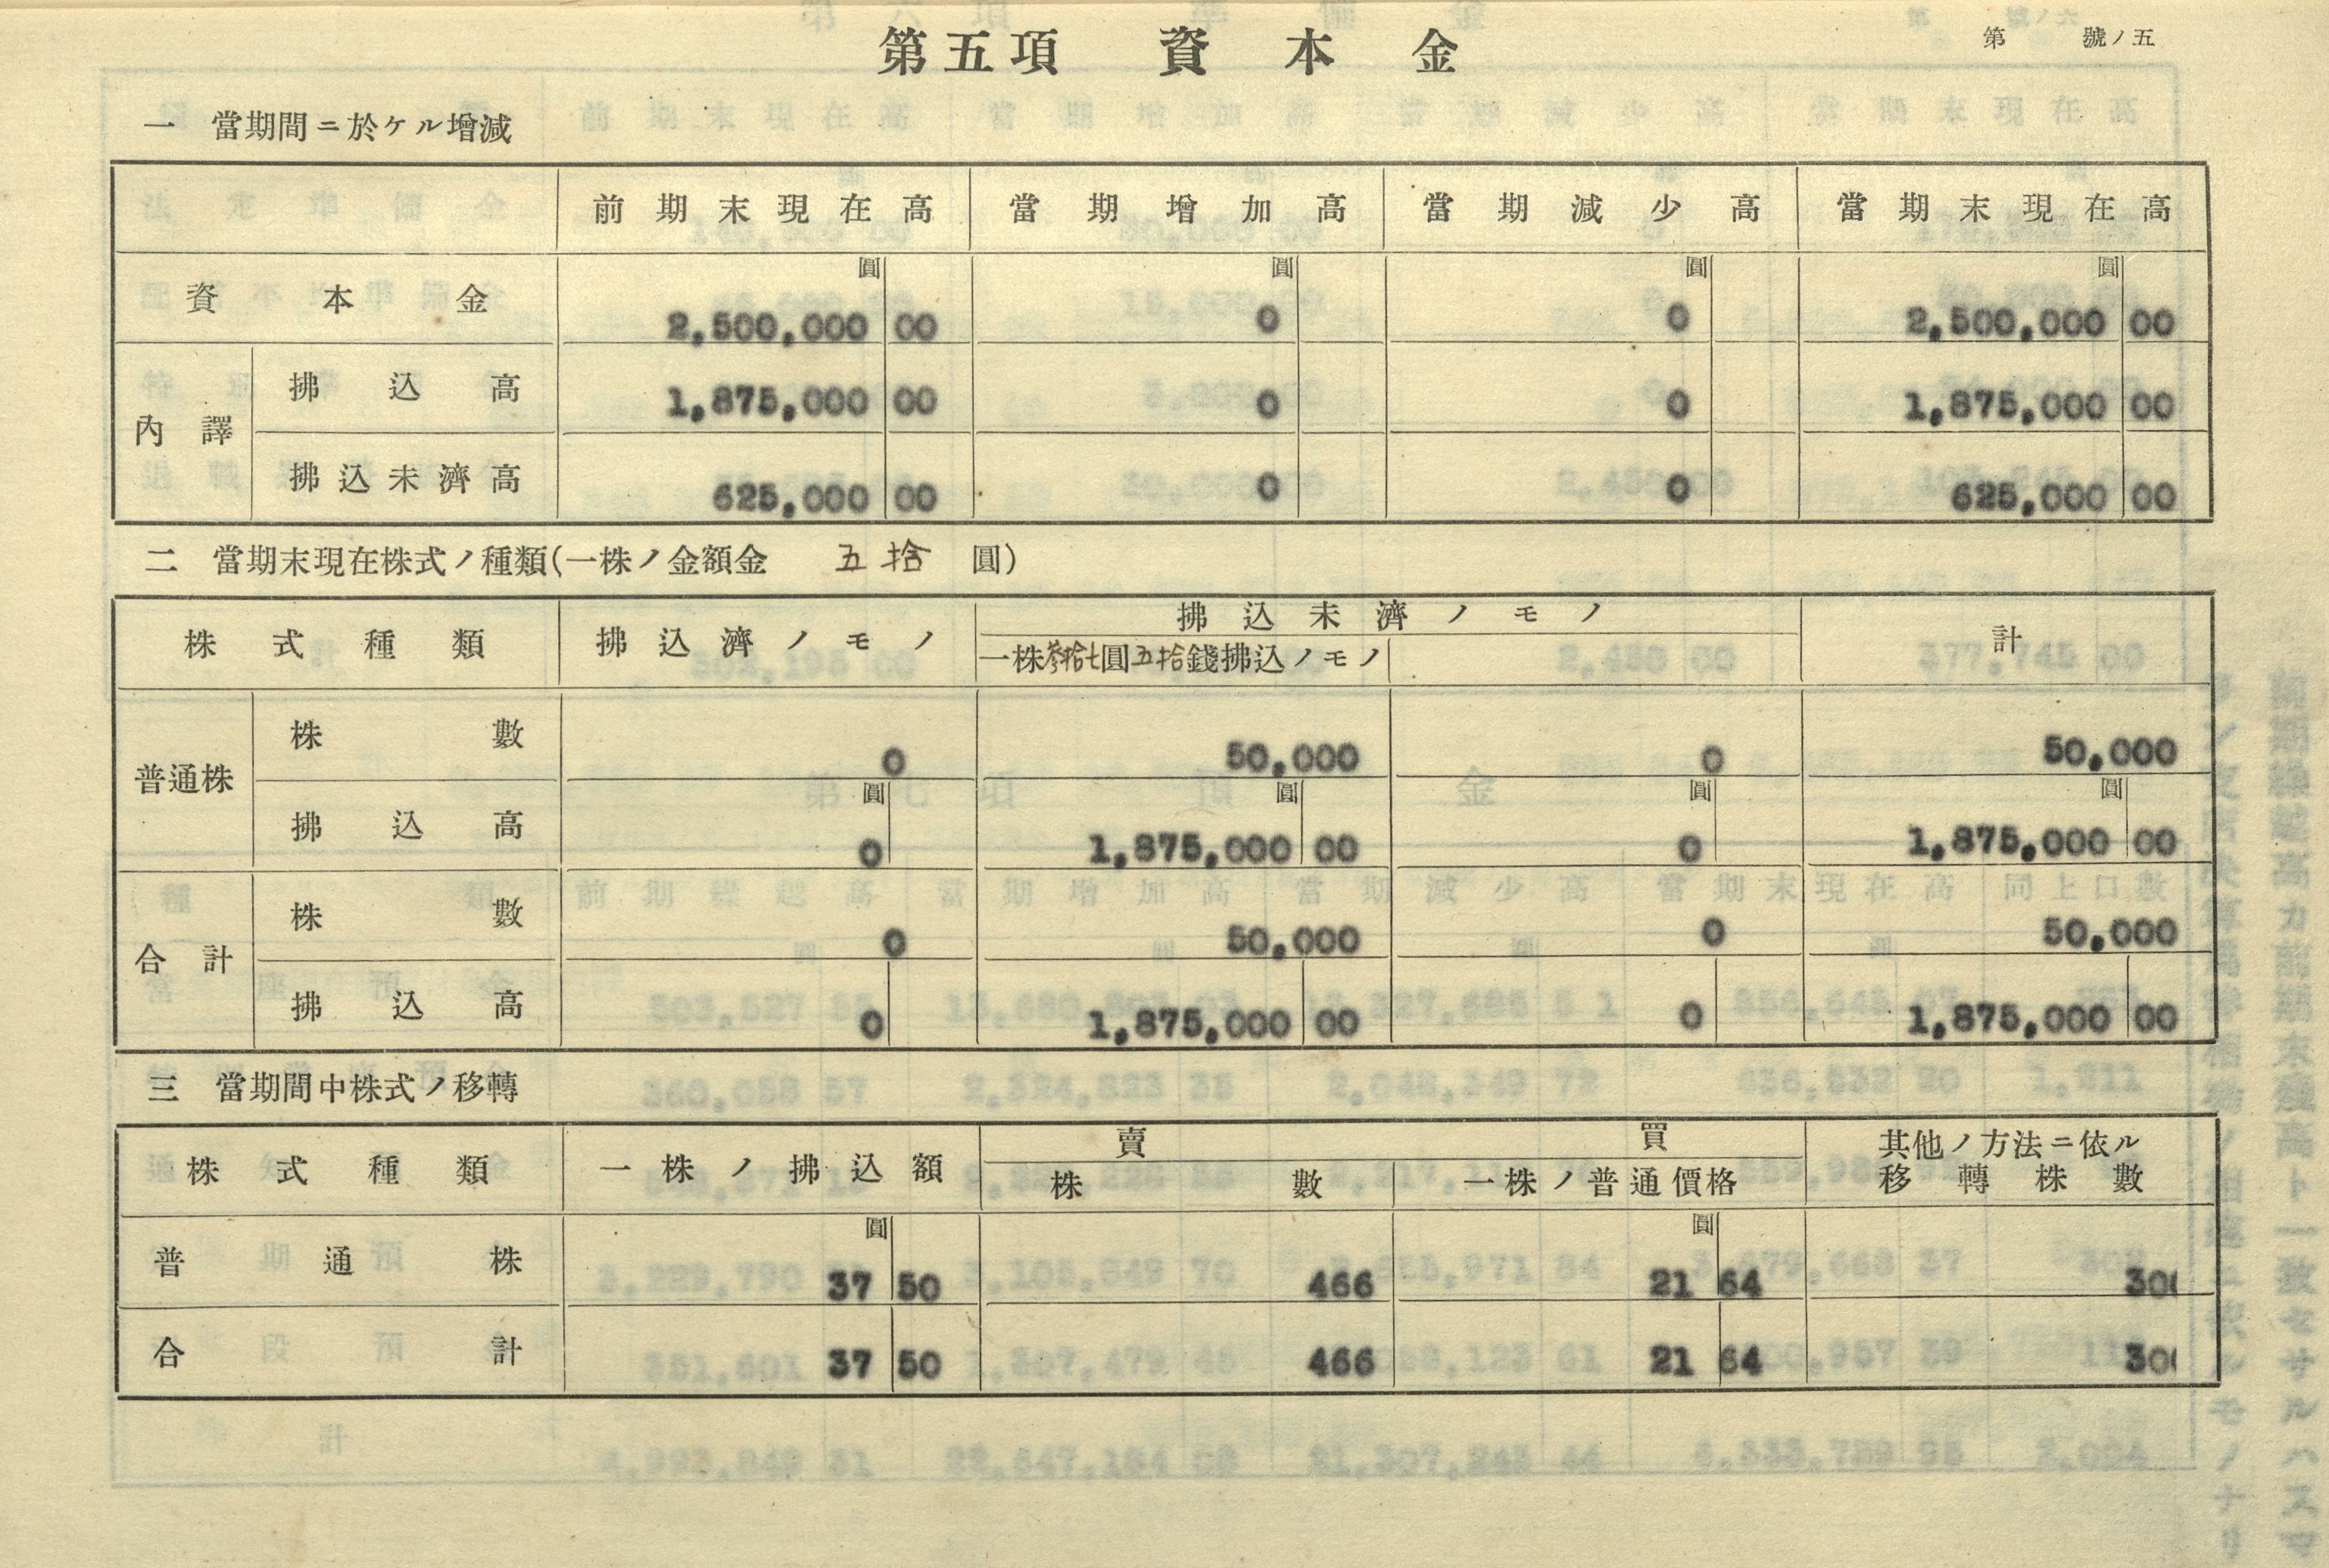 第　號ノ五
第五項　資本金
一　當期間ニ於ケル增減
前期末現在高　當期增加高　當期減少高　當期末現在高
圓　圓　圓　圓
資本金　2,500,000 00　0　0　2,500,000 00
內譯　拂込高　1,875,000 00　0　0　1,875,000 00
拂込未濟高　625,000 00　0　0　625,000 00
二　當期末現在株式ノ種類(一株ノ金額金　五拾　圓)
株式種類　拂込濟ノモノ　拂込未濟ノモノ　計
一株參拾七圓五拾錢拂込ノモノ
普通株　株數　0　50,000　0　50,000
圓　圓　圓　圓
拂込高　0　1,875,000 00　0　1,875,000 00
合計　株數　0　50,000　0　50,000
拂込高　0　1,875,000 00　0　1,875,000 00
三　當期間中株式ノ移轉
株式種類　一株ノ拂込額　賣買　其他ノ方法ニ依ル移轉株數
株數　一株ノ普通價格
圓　圓
普通株　37 50　466　21 64　300
合計　37 50　466　21 64　300